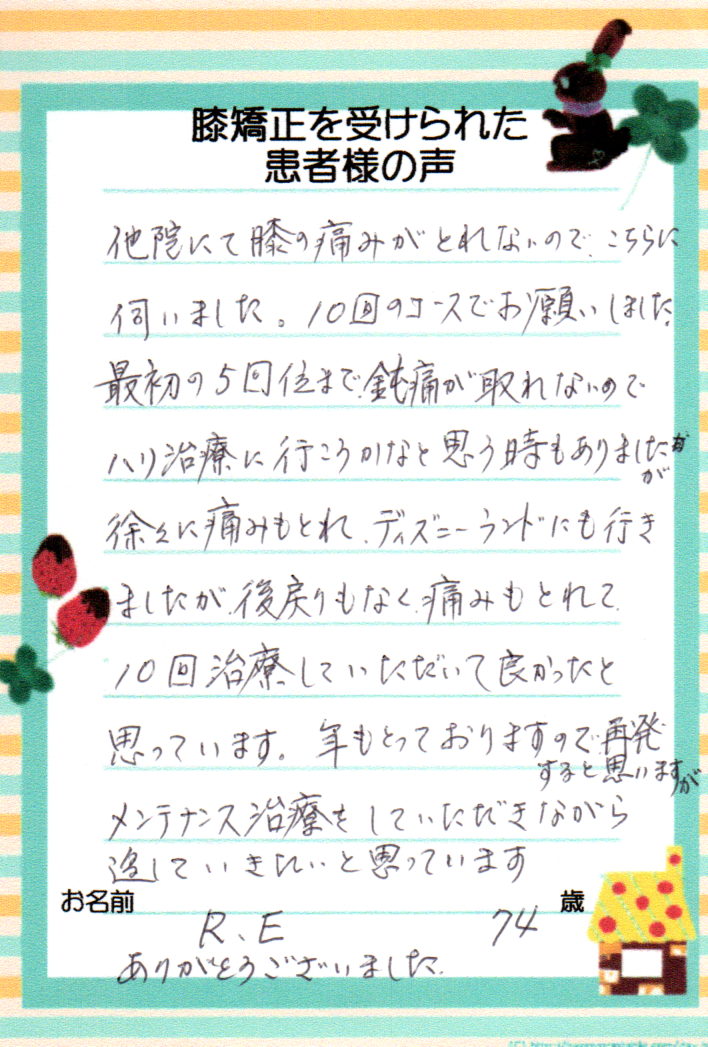 膝矯正を受けられた
患者様の声
他院にて膝の痛みがとれないので、こちらに
伺いました。10回のコースでお願いしました。
最初の5回位まで、鈍痛が取れないので
ハリ治療に行こうかなと思う時もありました
が
徐々に痛みもとれ、ディズニーランドにも行き
ましたが、後戻りもなく、痛みもとれて、
10回治療していただいて良かったと
思っています。年もとっておりますので再発
すると思いますが
メンテナンス治療をしていただきながら
過していきたいと思っています
お名前
R、E
74
歳
ありがとうございました。